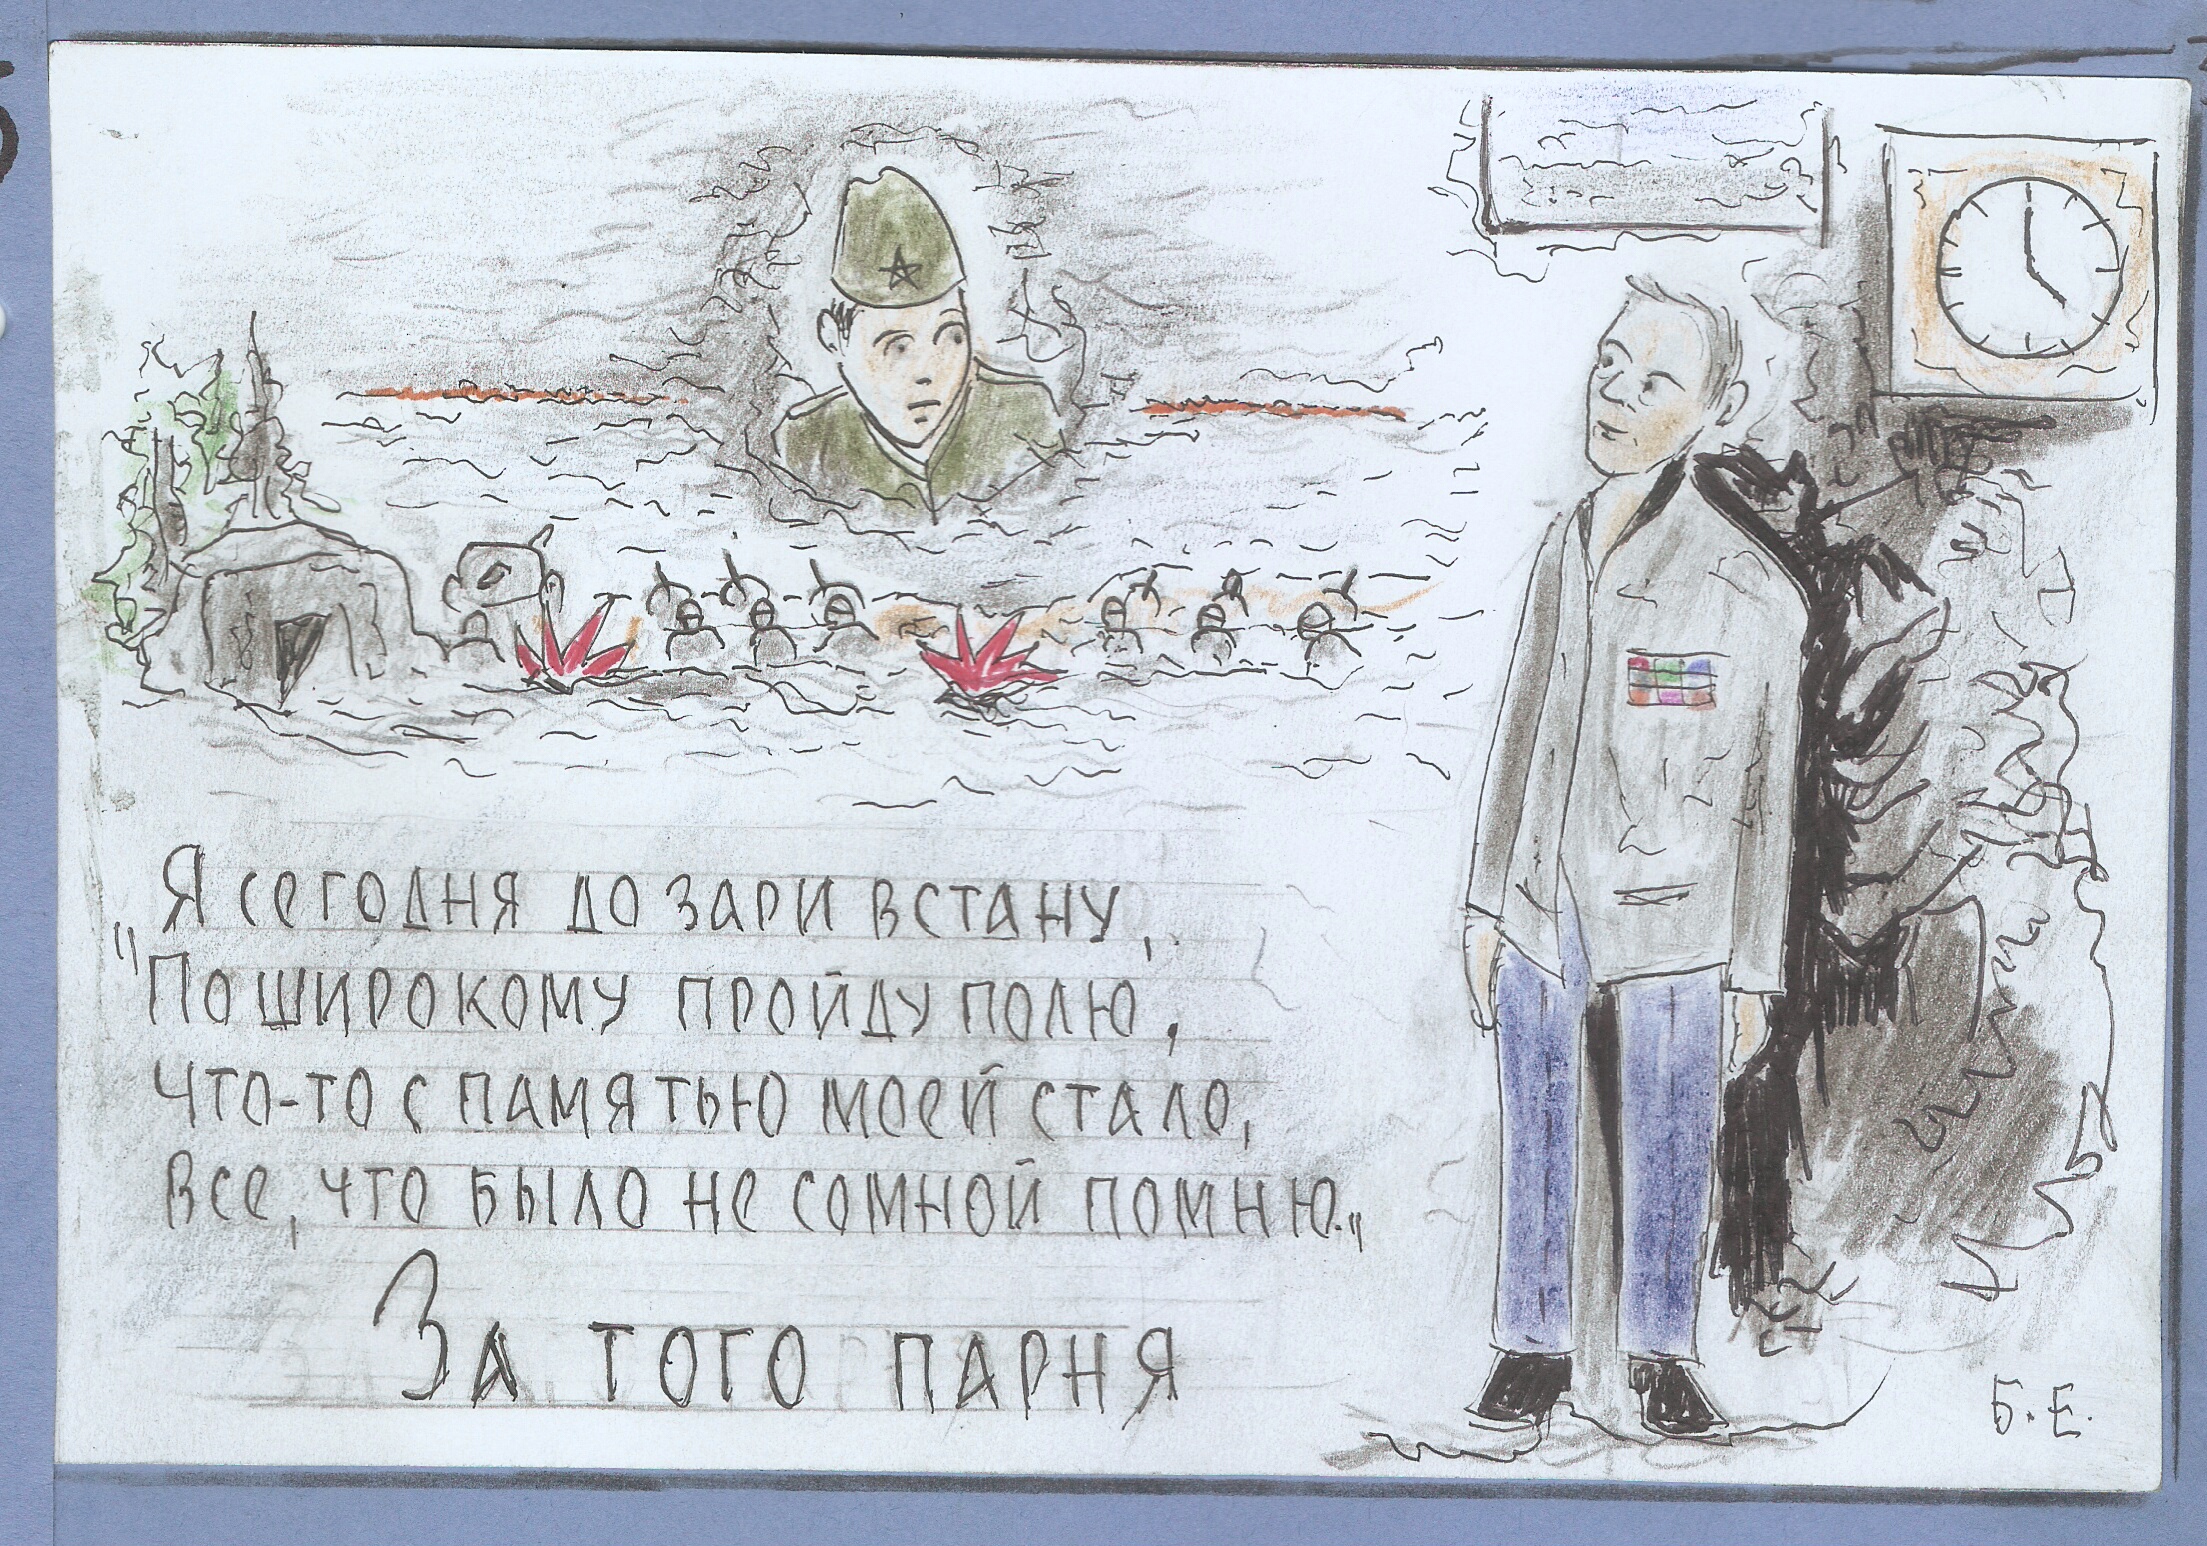 Я сегодня до зари встану,
"По широкому пройду полю,
что-то с памятью моей стало,
все, что было не сомной помню."
За того парня
Б.Е.